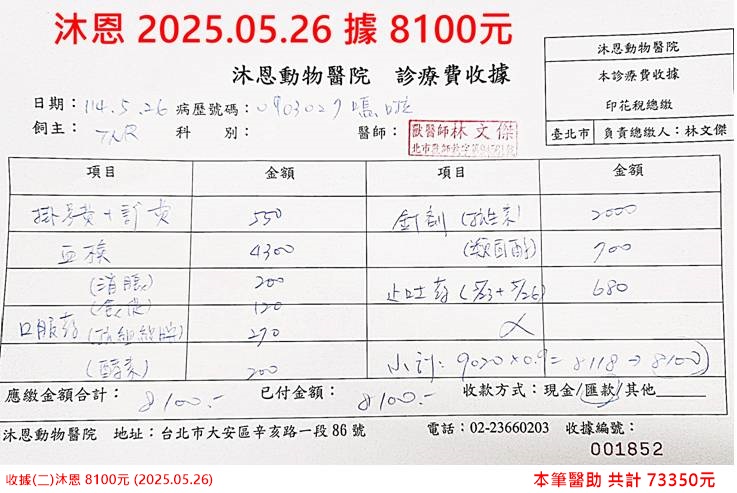 沐恩 2025.05.26 據 8100元
沐恩動物醫院 診療費收據
沐恩動物醫院
本診療費收據
印花稅總繳
臺北市 負責總繳人：林文傑
日期：114.5.26 病歷號碼：0903027 嗎啦
飼主：TNR 科 別： 醫師：獸醫師林文傑
項目 金額 項目 金額
掛号費+診費 550 針劑(抗生素) 2000
血檢 4300 (類固醇) 700
(消脹) 200 止吐葯(5/23+5/26) 680
120
口服葯 270
(酵素) 200 小計：9020×0.9=8118→8100
應繳金額合計：8100.- 已付金額：8100.- 收款方式：現金/匯款/其他
沐恩動物醫院 地址：台北市大安區辛亥路一段86號 電話：02-23660203 收據編號：
001852
收據(二)沐恩 8100元 (2025.05.26) 本筆醫助 共計 73350元